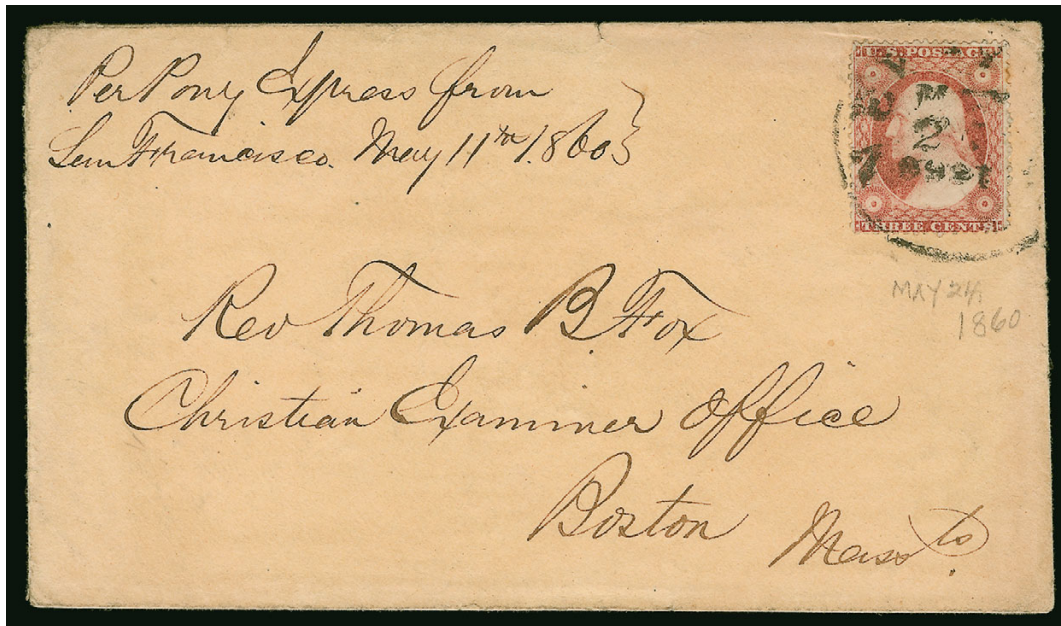 Per Pony Express from
San Francisco May 11th 1860
U.S. POSTAGE
THREE CENTS
MAY 24,
1860
Rev Thomas B. Fox
Christian Examiner Office
Boston
Massts.